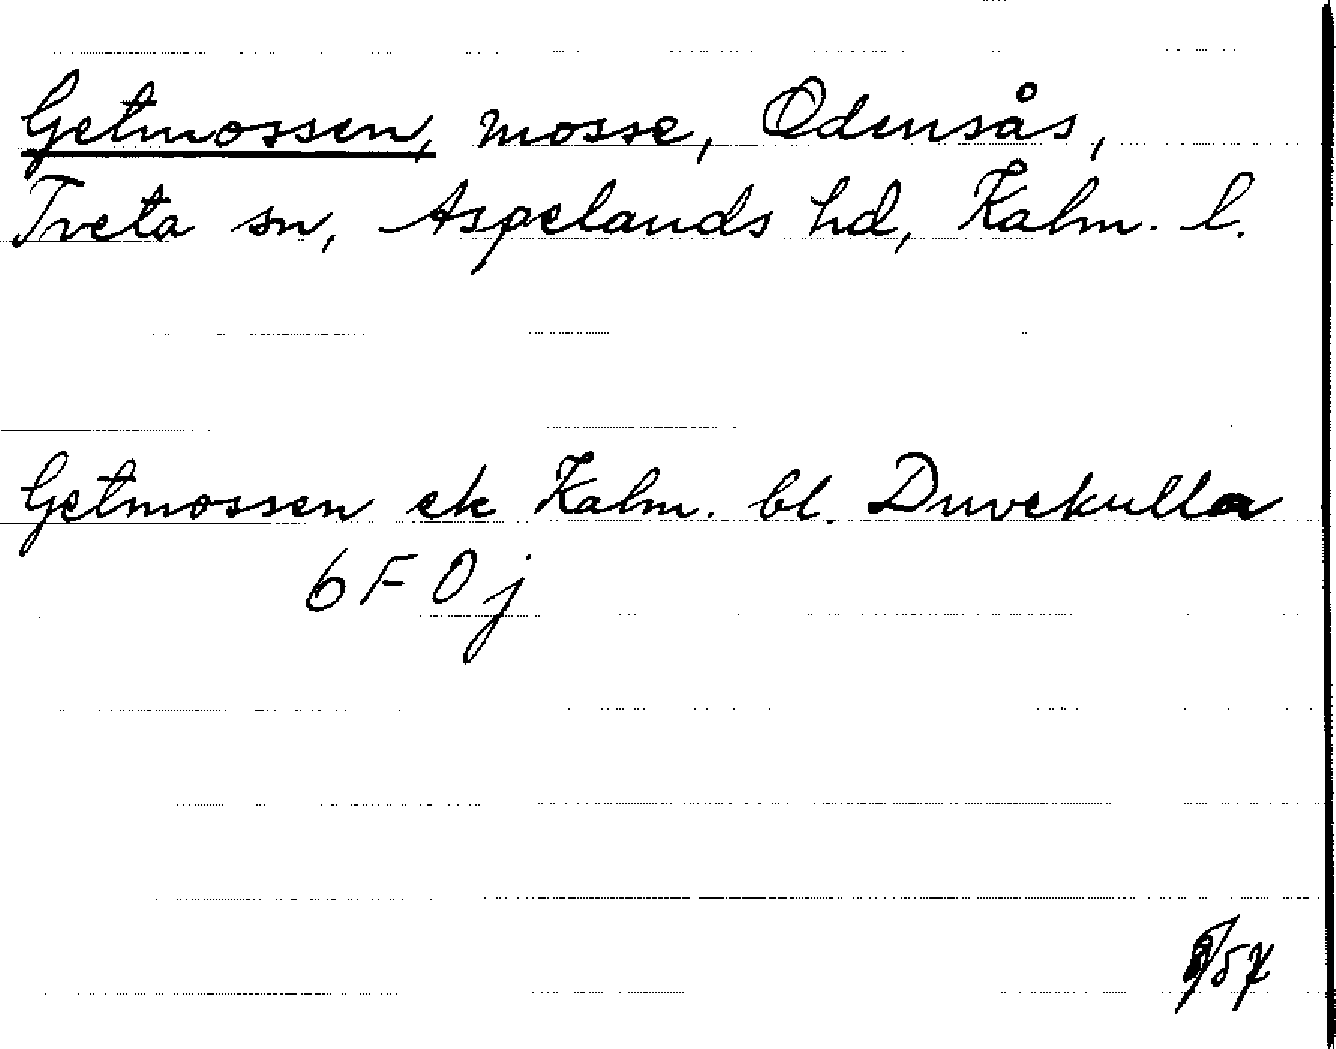 Getmossen, mosse, Odensås,
Tveta sn, Aspelands hd, Kalm. l.
Getmossen ek Kalm. bl. Duvekulla
6 F 0 j